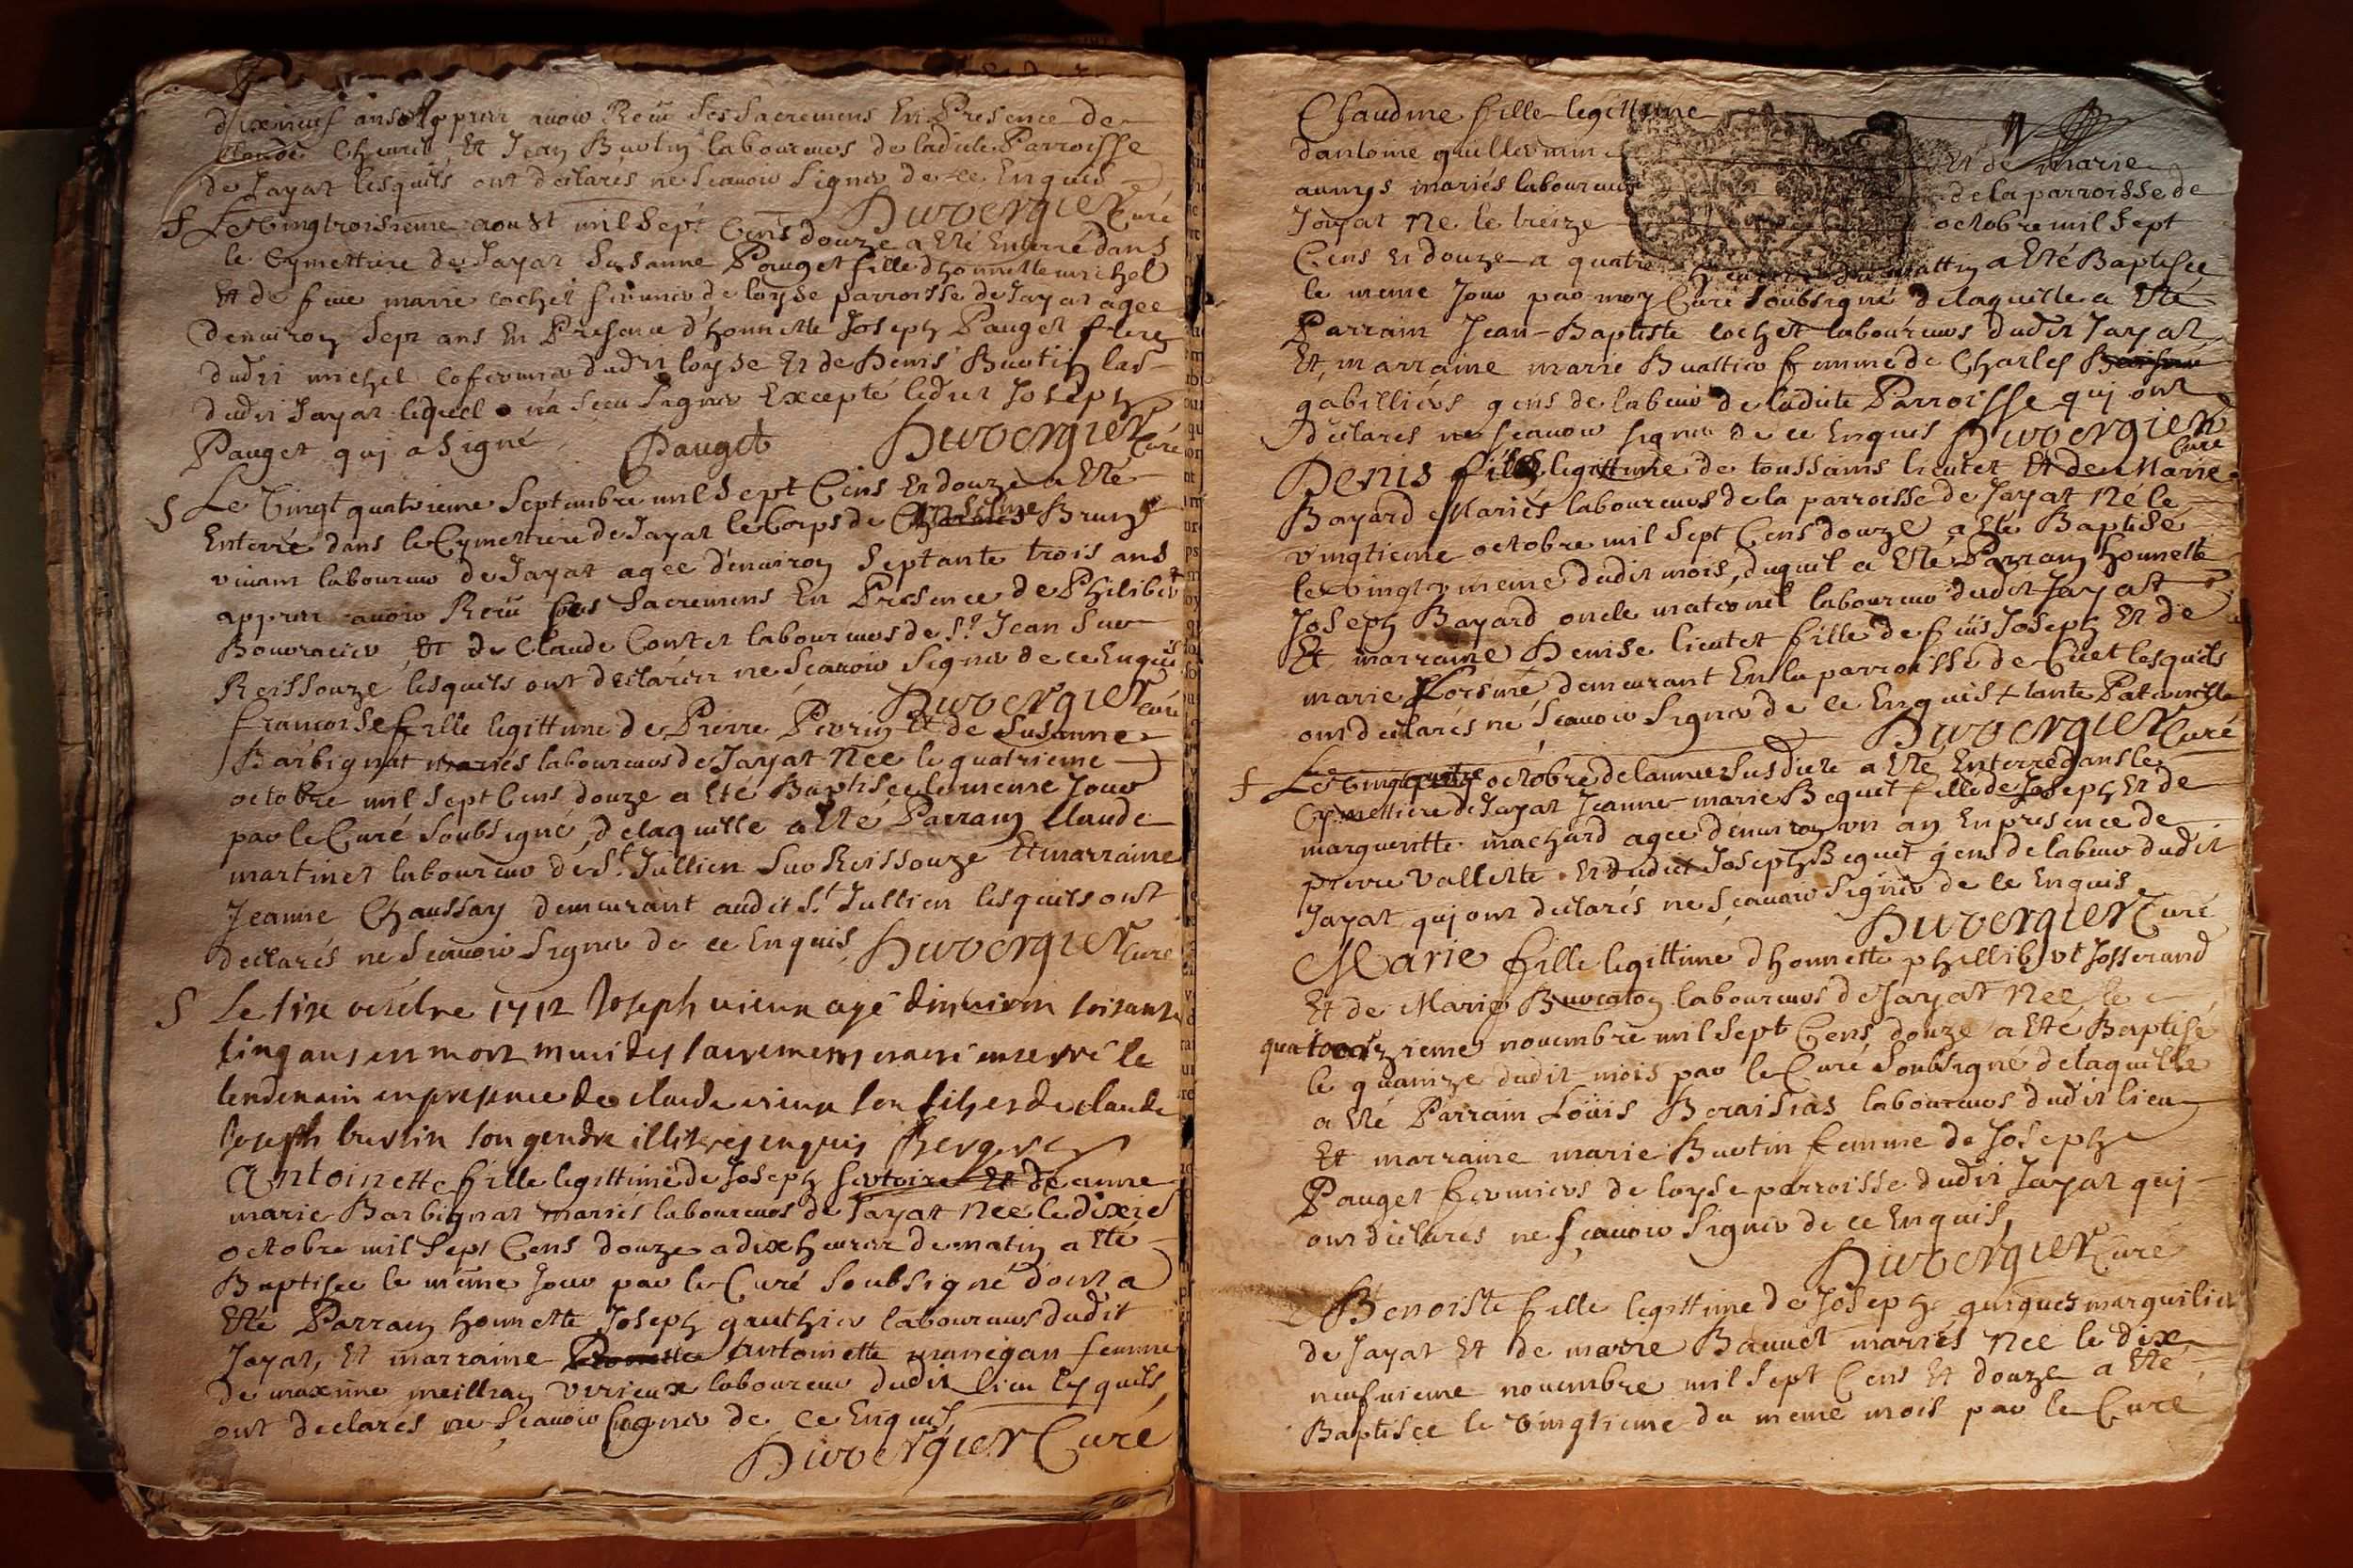 dixneuf ans et apprer avoir Reçu ses sacremens En Presence de
Claude Et Jean Buvtin laboureurs de ladicte Parroisse
de Jayat lesquels ont déclarés ne Scavoir Signer de ce Enquis
Duvergier Curé
Le Vingtroisieme aoust mil Sept Cens douze a Eté Enterré dans
le Cymettiere de Jayat Susanne Pauget fille d'honneste michel
Et de feue marie cochet fermier de loyse parroisse de Jayat agee
denviron Sept ans En Presence d'honneste Joseph Pauget frere
dudit michel cofermier dudit loyse Et de Denis Buvtin lab
dudit Jayat lequel n'a Sceu Signer Excepté ledict Joseph
Pauget qui a Signé Pauget Duvergier Curé
Le Vingt quatrieme Septembre mil Sept Cens Et douze a Eté
Enterré dans le Cymettiere de Jayat le Corps de Anthelme Brung
vivant laboureur de Jayat agee d'environ Septante trois ans
apprer avoir Reçu Ses Sacremens En Presence de Philibert
Bouvracier, Et de Claude Contet laboureurs de St Jean Sur
Reissouze lesquels ont déclarér ne Scavoir Signer de ce Enquis
Duvergier Curé
francoise fille legittime de Pierre Pevrin Et de Susanne
Barbignat mariés laboureurs de Jayat Née le quatrieme
octobre mil Sept Cens douze a Eté Baptisee le meme Jour
par le Curé Soubsigné, de laquelle a Eté Parrain Claude
martinet laboureur de St Jullien Sur Reissouze Et marraine
Jeanne Chaussay demeurant audit St Jullien lesquels ont
declarés ne Scavoir Signer de ce Enquis Duvergier Curé
Le sixe octobre 1712 Joseph vieux agé dinviron soisante
cinq ans est mort muni des sacrements et a eté enterré le
lendemain en presence de claude vieux son fils et de claude
Joseph buvtin son gendre illiterés enquis Berger
Antoinette fille legittime de Joseph Sertoire Et de anne
marie Barbignat mariés laboureurs de Jayat Née le dixie
octobre mil Sept Cens douze a dix heurer de matin a Eté
Baptisee le même Jour par le Curé Soubsigné dont a
Eté Parrain honneste Joseph gauthier laboureurs dudit
Jayat, Et marraine Antoinette manegan femme
de maxime meillan Verieux laboureur dudit lieu lesquels
ont declarés ne Scavoir Signer de ce Enquis
Duvergier Curé
Claudine fille legittime
dantoine guillermin Et de Marie
mariés laboureurs de la parroisse de
Jayat Né le treize octobre mil Sept
Cens Et douze a quatre heures du mattin a Eté Baptisee
le meme Jour par moy Curé Soubsigné de laquelle a Eté
Parrain Jean-Baptiste cochet laboureurs dudit Jayat
Et, marraine marie Buattier femme de Charles
gabilliers gens de labeur de ladicte Parroisse qui ont
declarés ne scavoir signer de ce Enquis Duvergier Curé
Denis fils legittime de toussains lieutet Et de Marie
Bayard Mariés laboureurs de la parroisse de Jayat Né le
vingtieme octobre mil Sept Cens douze a Eté Baptisé
le vingt unieme dudit mois, duquel a Eté Parrain honneste
Joseph Bayard oncle maternel laboureur dudit Jayat
Et marraine Denise lieutet fille de feüs Joseph Et de
marie demeurant En la parroisse de Cuet lesquels
ont déclarés ne Scavoir Signer de ce Enquis + tante Paternelle
Duvergier Curé
Le Vingtquatre octobre de lannee Susdicte a Eté Enterré dans le
Cymettiere de Jayat Jeanne-marie Bequet fille de Joseph Et de
margueritte machard agee denviron un an En presence de
pierre Vallette Et dudict Joseph Bequet gens de labeur dudit
Jayat qui ont declarés ne Scavoir Signer de ce Enquis
Duvergier Curé
Marie fille legittime d'honneste phillibert Josserand
Et de Marie Buvraton laboureurs de Jayat Née le
quatorzieme novembre mil Sept Cens douze a Eté Baptisé
le quainze dudit mois par le Curé Soubsigné de laquelle
a Eté Parrain Loüis Beraisias laboureurs dudit lieu
Et marraine marie Buvtin femme de Joseph
Pauget fermiers de loyse parroisse dudit Jayat qui
ont declarés ne Sçavoir Signer de ce Enquis,
Duvergier Curé
Benoiste fille legittime de Joseph guigues marguilier
de Jayat Et de marie Bauuet mariés Née le dix
neufvieme novembre mil Sept Cens Et douze a Eté
Baptisee le vingtieme du meme mois par le Curé